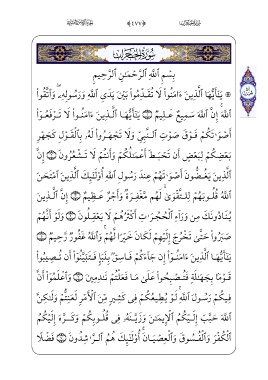 سُورَةُ الحُجُرَاتِ
بِسْمِ ٱللَّهِ ٱلرَّحْمَٰنِ ٱلرَّحِيمِ
يَٰٓأَيُّهَا ٱلَّذِينَ ءَامَنُوا۟ لَا تُقَدِّمُوا۟ بَيْنَ يَدَىِ ٱللَّهِ وَرَسُولِهِۦ ۖ وَٱتَّقُوا۟
ٱللَّهَ ۚ إِنَّ ٱللَّهَ سَمِيعٌ عَلِيمٌ ۝ يَٰٓأَيُّهَا ٱلَّذِينَ ءَامَنُوا۟ لَا تَرْفَعُوٓا۟
أَصْوَٰتَكُمْ فَوْقَ صَوْتِ ٱلنَّبِىِّ وَلَا تَجْهَرُوا۟ لَهُۥ بِٱلْقَوْلِ كَجَهْرِ
بَعْضِكُمْ لِبَعْضٍ أَن تَحْبَطَ أَعْمَٰلُكُمْ وَأَنتُمْ لَا تَشْعُرُونَ ۝ إِنَّ
ٱلَّذِينَ يَغُضُّونَ أَصْوَٰتَهُمْ عِندَ رَسُولِ ٱللَّهِ أُو۟لَٰٓئِكَ ٱلَّذِينَ ٱمْتَحَنَ
ٱللَّهُ قُلُوبَهُمْ لِلتَّقْوَىٰ ۚ لَهُم مَّغْفِرَةٌ وَأَجْرٌ عَظِيمٌ ۝ إِنَّ ٱلَّذِينَ
يُنَادُونَكَ مِن وَرَآءِ ٱلْحُجُرَٰتِ أَكْثَرُهُمْ لَا يَعْقِلُونَ ۝ وَلَوْ أَنَّهُمْ
صَبَرُوا۟ حَتَّىٰ تَخْرُجَ إِلَيْهِمْ لَكَانَ خَيْرًا لَّهُمْ ۚ وَٱللَّهُ غَفُورٌ رَّحِيمٌ ۝
يَٰٓأَيُّهَا ٱلَّذِينَ ءَامَنُوٓا۟ إِن جَآءَكُمْ فَاسِقٌۢ بِنَبَإٍ فَتَبَيَّنُوٓا۟ أَن تُصِيبُوا۟
قَوْمًۢا بِجَهَٰلَةٍ فَتُصْبِحُوا۟ عَلَىٰ مَا فَعَلْتُمْ نَٰدِمِينَ ۝ وَٱعْلَمُوٓا۟ أَنَّ
فِيكُمْ رَسُولَ ٱللَّهِ ۚ لَوْ يُطِيعُكُمْ فِى كَثِيرٍ مِّنَ ٱلْأَمْرِ لَعَنِتُّمْ وَلَٰكِنَّ
ٱللَّهَ حَبَّبَ إِلَيْكُمُ ٱلْإِيمَٰنَ وَزَيَّنَهُۥ فِى قُلُوبِكُمْ وَكَرَّهَ إِلَيْكُمُ
ٱلْكُفْرَ وَٱلْفُسُوقَ وَٱلْعِصْيَانَ ۚ أُو۟لَٰٓئِكَ هُمُ ٱلرَّٰشِدُونَ ۝ فَضْلًا